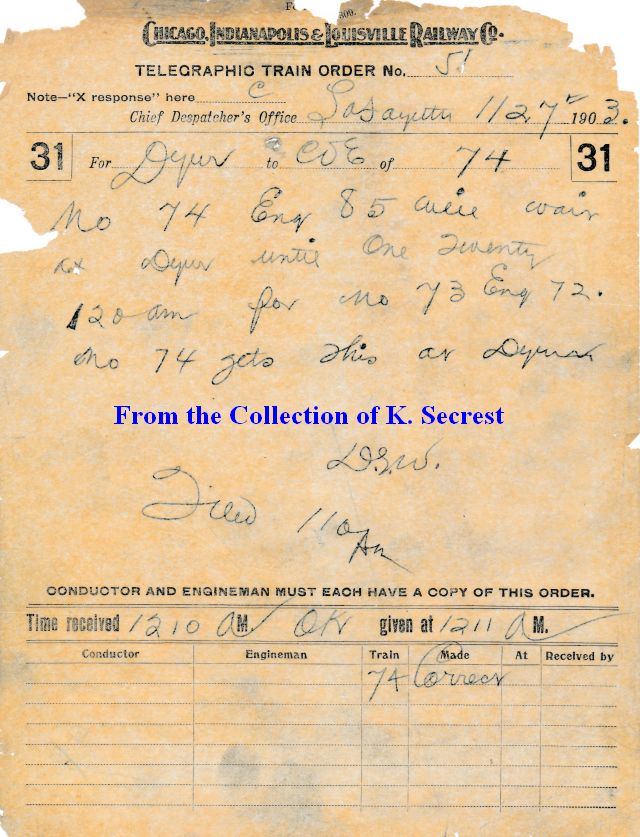 Chicago, Indianapolis & Louisville Railway Co.
TELEGRAPHIC TRAIN ORDER No. 51
Note—"X response" here C
Chief Despatcher's Office Lafayette 1/27 1903.
31 For Dyer to C&E of 74 31
No 74 Eng 85 will wait
at Dyer until One Twenty
120 am for No 73 Eng 72.
No 74 gets this at Dyer
From the Collection of K. Secrest
Filed
CONDUCTOR AND ENGINEMAN MUST EACH HAVE A COPY OF THIS ORDER.
Time received 1210 AM. OK given at 1211 AM.
Conductor Engineman Train Made At Received by
74 Correct